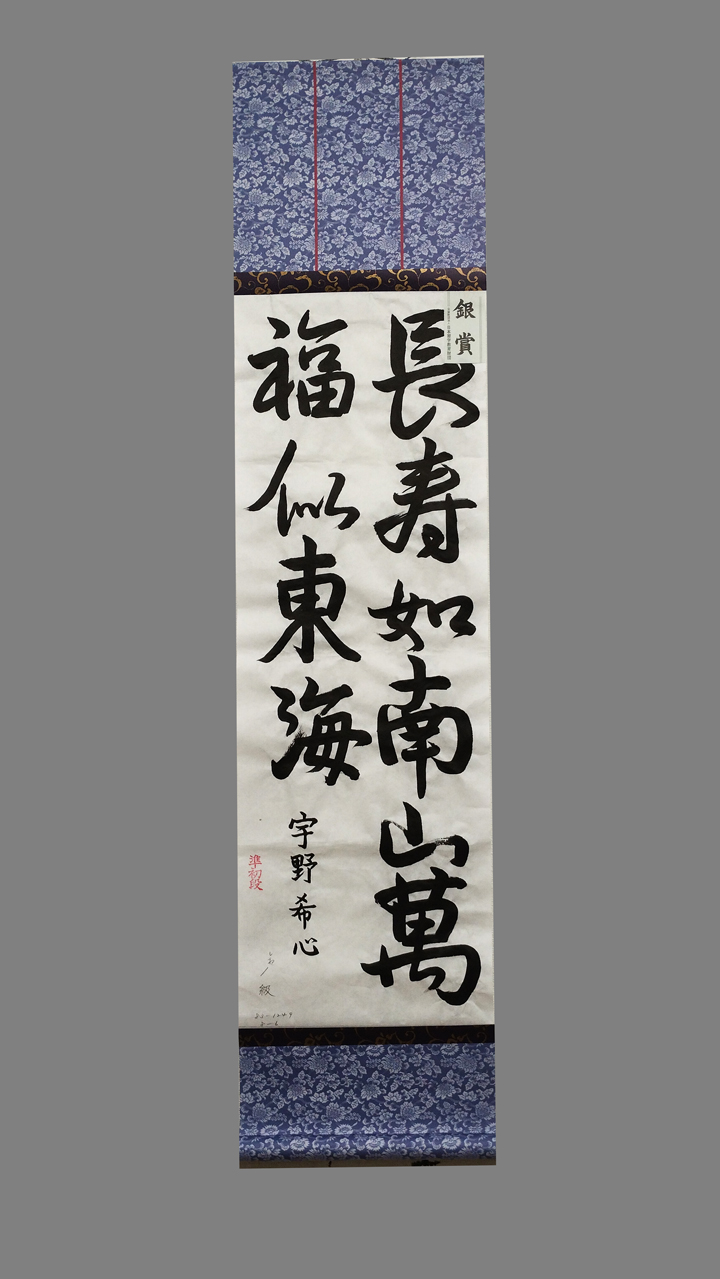 銀賞
長寿如南山萬
福似東海
宇野希心
準初段
級